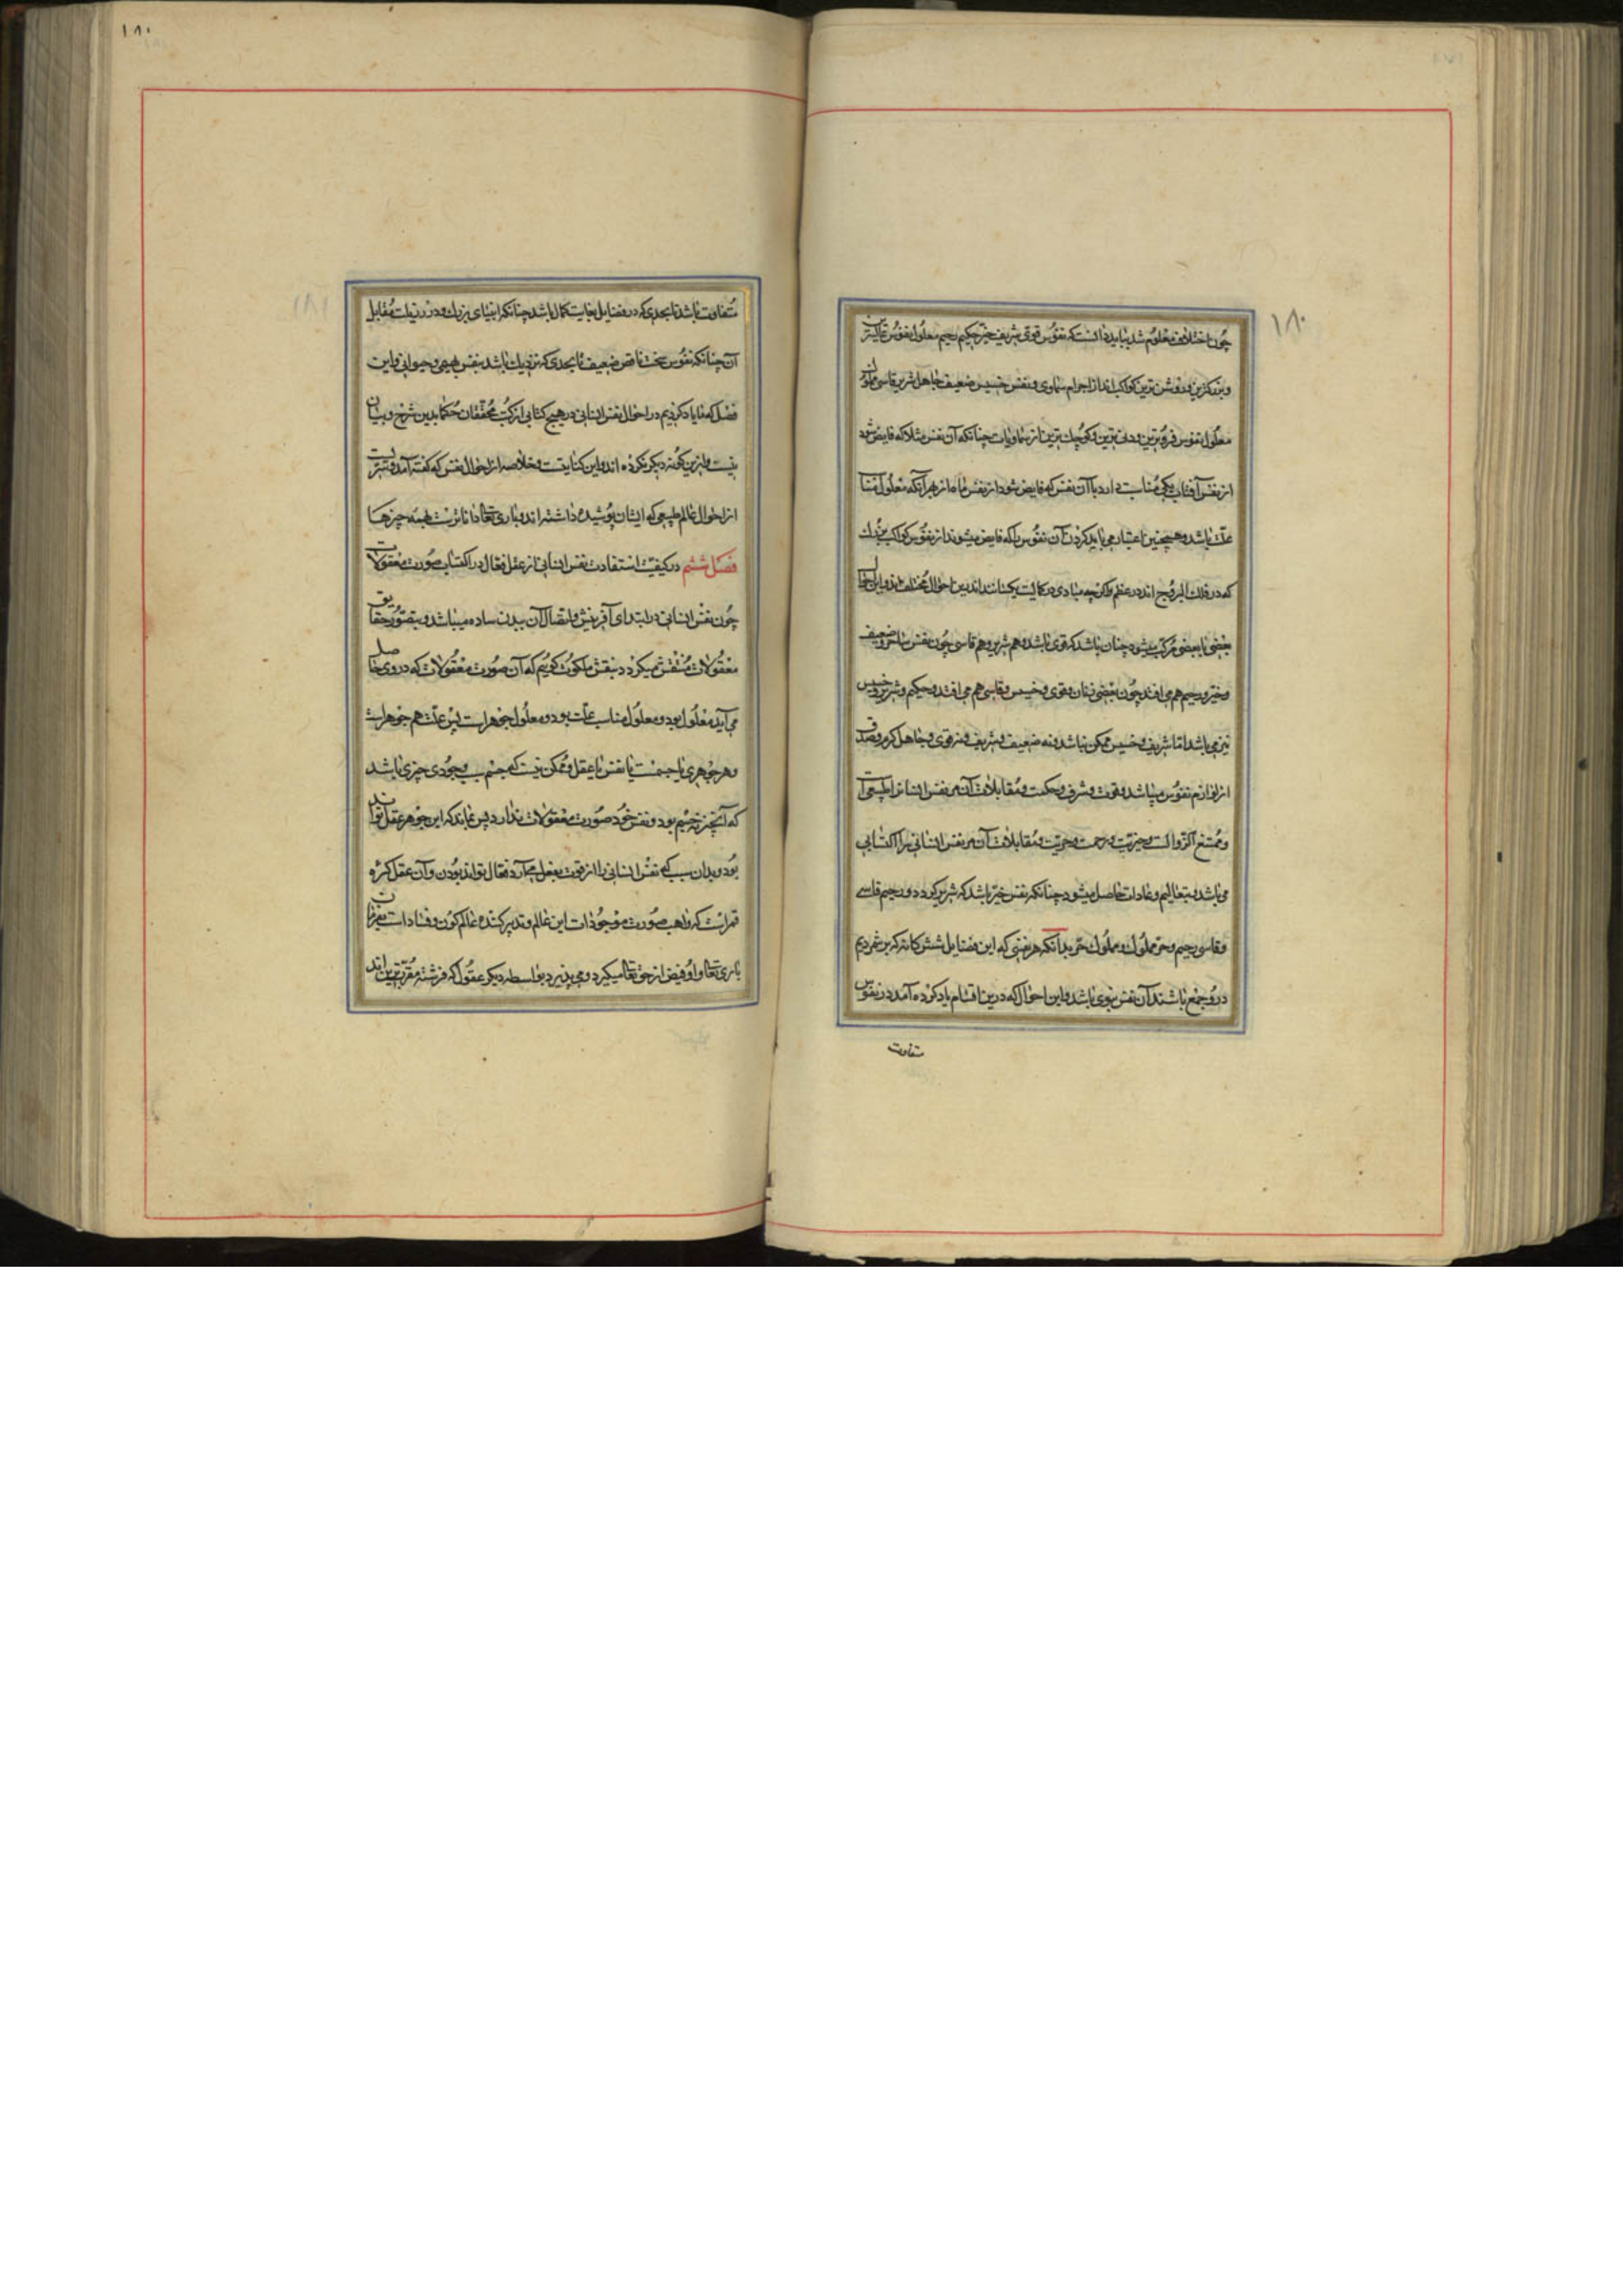 ١٨٠
چون اختلاف معلوم شد بباید دانست که نفوس قوی شریف خیّر حکیم رحیم معلول نفوس عالیترین
و بزرگترین و روشن ترین کواکب اند از اجرام سماوی و نفس خسیس ضعیف جاهل شریر قاسی مملوک
معلول نفوس فروترین و دنی ترین و کوچک ترین از سماویات چنانکه آن نفس مثلا که فایض شود
از نفس آفتاب کی مناسبت دارد با آن نفس که فایض شود از نفس ماه از بهر آنکه معلول مناسب
علت باشد و همچنین اعتبار می باید کردن آن نفوس را که فایض میشوند از نفوس کواکب بزرگ
که در فلك البروج اند در عظم و اگرچه مبادی در کمالیت یکسانند اندرین احوال مختلف اند و این احوال
بعضی با بعضی مرکب میشود چنان باشد که قوی باشد و هم شریر و هم قاسی چون نفس و ضعیف
و خیّر و رحیم هم می افتد چون بعضی زنان و قوی و خسیس و قاسی هم می افتد و حکیم و شریر و خسیس
نیز می باشد اما شریف و خسیس ممکن نباشد و نه ضعیف و شریف و نه قوی و جاهل
از لوازم نفوس میباشد و قوت و شرف و حکمت و مقابلات آن مر نفس انسانی را طبیعی است
و ممتنع الزوال است و خیریّت و رحمت و حریّت و مقابلات آن مر نفس انسانی را اکتسابی
می باشد و بتعالیم و عادات حاصل میشود چنانکه نفس خیّر باشد که شریر گردد و رحیم قاسی
و قاسی رحیم و حر مملوک و مملوک حر بدانکه هر نفسی که این فضایل شش گانه که برشمردیم
درو جمع باشند آن نفس نبوی باشد و این احوال که درین اقسام یاد کرده آمد در نفوس
متفاوت
١٨٠
متفاوت باشد تا بحدی که در فضایل بغایت کمال باشد چنانکه انبیای بزرگ و در رذیلت مقابل
آن چنانکه نفوس سخت ناقص ضعیف تا بحدی که نزدیك باشد بنفس بهیمی و حیوانی و این
فصل که ما یاد کردیم در احوال نفس انسانی در هیچ کتابی از کتب محققان حکما بدین شرح و بیان
نیست و ازین گونه دیگر نکرده اند و این کفایتست و خلاصه از احوال نفس که گفته آمد و سریست
از احوال عالم طبیعی که ایشان پوشیده داشته اند و باری تعالی داناترست بهمه چیزها
فصل ششم در کیفیت استفادت نفس انسانی از عقل فعال در اکتساب صورت معقولات
چون نفس انسانی در ابتدای آفرینش و اتصال آن ببدن ساده میباشد و بتصور حقایق
معقولات منتقش میگردد بنقش ملکوت گوییم که آن صورت معقولات که در وی حاصل
می آید معلول بود و معلول مناسب علت بود و معلول جوهر است پس علت هم جوهر است
و هر جوهری یا جسمست یا نفس یا عقل و ممکن نیست که جسم سبب وجودی چیزی باشد
که آنچیز نه جسم بود و نفس خود صورت معقولات ندارد پس بماند که این جوهر عقل تواند
بود و بدان سبب که نفس انسانی را از قوت بفعل می آرد فعال تواند بودن و آن عقل کره
قمر است که واهب صورت موجودات این عالم و تدبیر کننده عالم کون و فساد است بفرمان
باری تعالی و او فیض از حق تعالی میگیرد و می پذیرد بواسطه دیگر عقول که فرشته مقرب ترین اند